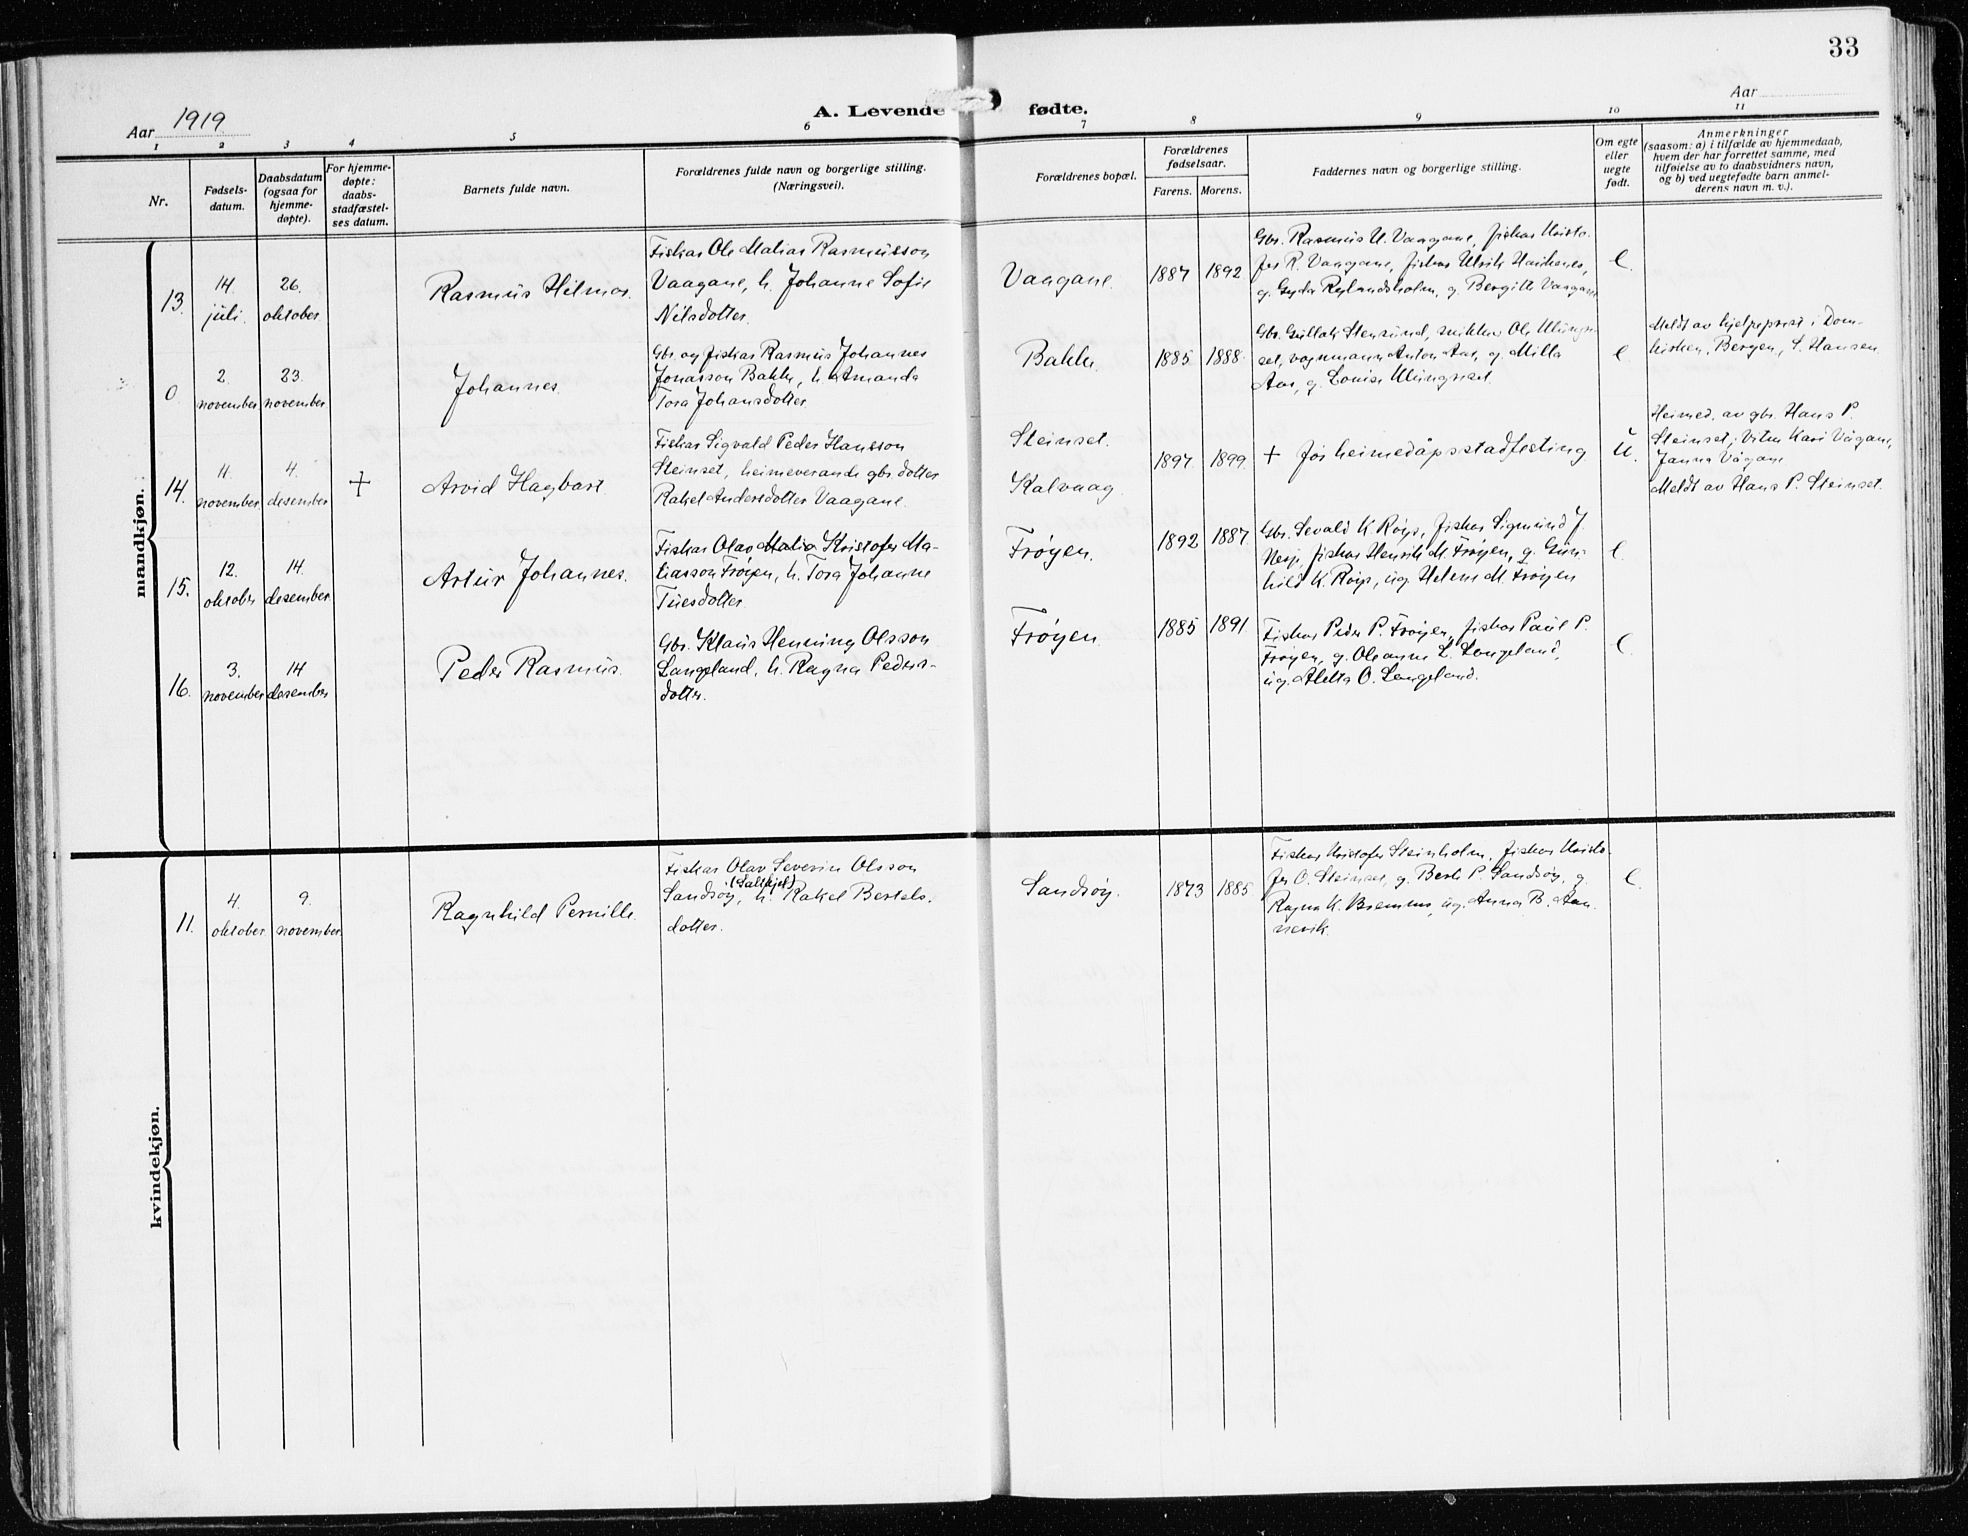 33
Aar 1919
A. Levende fødte.
Aar
1 2 3 4 5 6 7 8 9 10 11
Nr.
Fødsels-
datum.
Daabsdatum
(ogsaa for
hjemme-
døpte).
For hjemme-
døpte:
daabs-
stadfæstel-
ses datum.
Barnets fulde navn.
Forældrenes fulde navn og borgerlige stilling.
(Næringsvei).
Forældrenes bopæl.
Forældrenes
fødselsaar.
Farens. Morens.
Faddernes navn og borgerlige stilling.
Om egte
eller
uegte
født.
Anmerkninger
(saasom: a) i tilfælde av hjemmedaab,
hvem der har forrettet samme, med
tilføielse av to daabsvidners navn,
og b) ved uegtefødte barn anmel-
derens navn m. v.).
mandkjøn.
13.
14.
juli.
26.
oktober
Rasmus Hilmar.
Fiskar Ole Matias Rasmusson
Vaagane, h. Johanne Sofie
Nilsdotter.
Vaagane.
1887 1892
Gbr. Rasmus U. Vaagane, fiskar Kristo-
fer R. Vaagane, fiskar Ulrik
g. Gyda Rylandsholm, g. Bergitte Vaagane
e.
0
2.
november
23.
november
Johannes.
Gbr. og fiskar Rasmus Johannes
Jonasson Bakke, h. Amanda
Tora Johansdotter.
Bakke.
1885 1888.
Gbr. Gullak Stensund, Ole
set, vognmann Anton Aas, g. Milla
Aas, g. Louise
e
Meldt av hjelpeprest i Dom-
kirken, Bergen, S. Hansen.
14.
11.
november
4.
desember
+
Arvid Hagbart
Fiskar Sigvald Peder Hansson
Steinset, heimeverande gbr.dotter
Rakel Andersdotter Vaagane.
Steinset.
Kalvaag.
1897. 1899.
+ for heimedåpsstadfesting
U.
Heimed. av gbr. Hans P.
Steinset; Vitne Kari Vågane,
Janna Vågane
Meldt av Hans P. Steinset.
15.
12.
oktober
14.
desember
Artur Johannes.
Fiskar Olav Kristofer Ma-
tiasson Frøyen, h. Tora Johanne
Tuesdotter
Frøyen.
1892 1887.
Gbr. Sevald K. Røys, fiskar Sigmund J.
Nesje, fiskar Henrik M. Frøyen, g. Gun-
hild K. Røys, ug. Helene M. Frøyen
e.
16.
3.
november
14
desember
Peder Rasmus.
Gbr. Klaus Henning Olsson
Langeland, h. Ragna Peders-
dotter.
Frøyen
1885 1891.
Fiskar Peder P. Frøyen, fiskar Paul P.
Frøyen, g. Oleanne L. Langeland,
ug. Aletta O. Langeland.
e.
kvindekjøn.
11.
4.
oktober
9.
november.
Ragnhild Pernille
Fiskar Olav Severin Olsson
Sandsøy, h. Rakel Bertels-
dotter.
Sandsøy.
1873 1885
Fiskar Kristofer Steinholm, fiskar Kristo-
fer O. Steinset, g. Berte P. Sandsøy, g.
Ragna K. Bremnes, ug. Anna B. Aan-
nevik.
e.